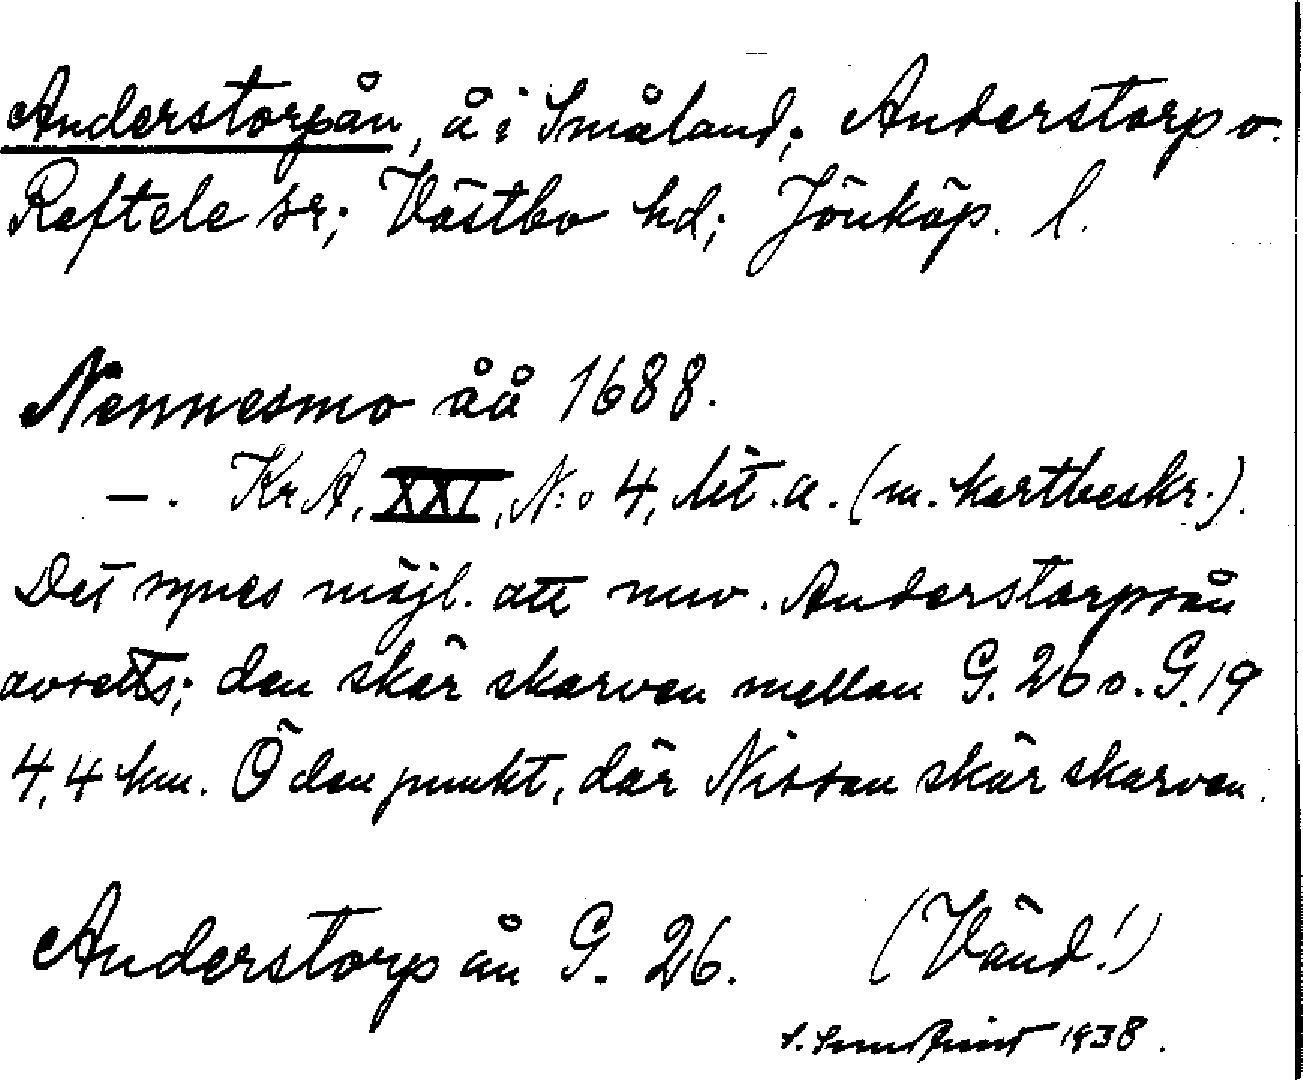 Anderstorpån, å i Småland; Anderstorp o.
Reftele sr; Västbo hd; Jönköp. l.
Nennesmo åå 1688.
—. KrA, XXI, N:o 4, lit. a. (m. kartbeskr.).
Det synes möjl. att nuv. Anderstorpsån
avsetts; den skär skarven mellan G. 26 o. G. 19
4,4 km. Ö den punkt, där Nissan skär skarven.
Anderstorpån G. 26. (Vänd!)
1938.